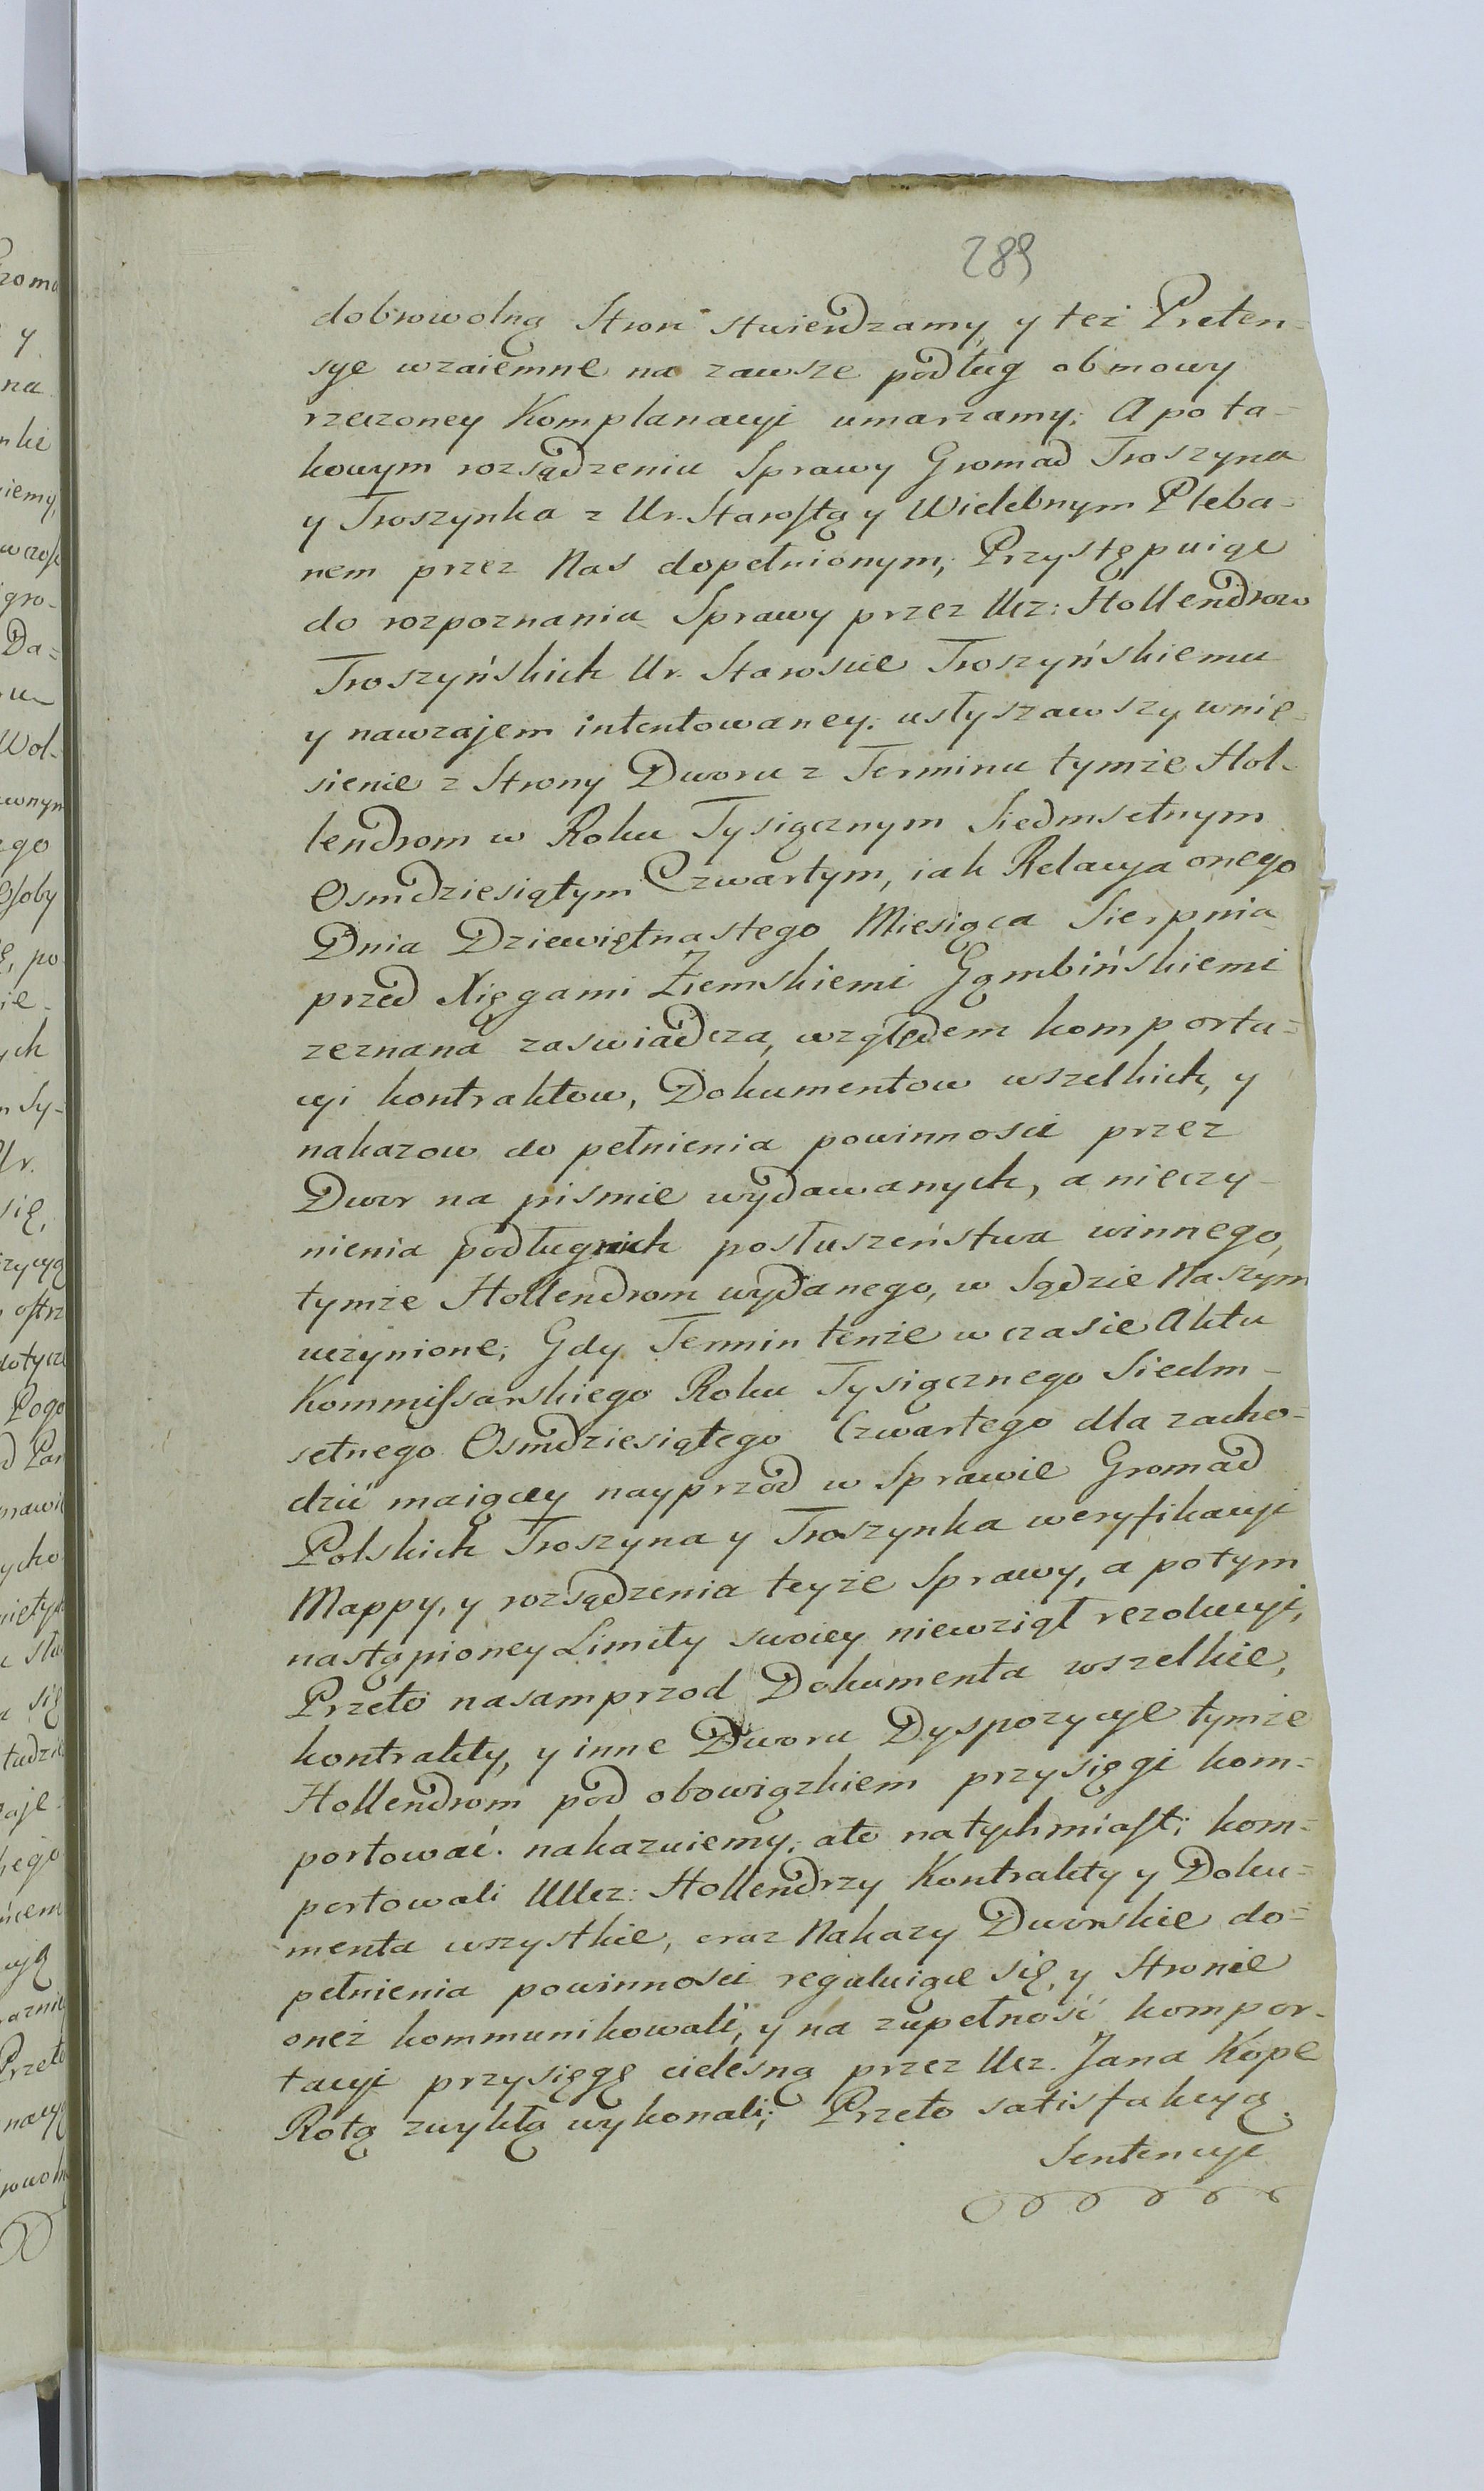 289
dobrowolną Stron stwierdzamy, y też Preten=
sye wzaiemne na zawsze podług obmowy
rzeczoney Komplanacyi umarzamy; A po ta=
kowym rozsądzeniu Sprawy Gromad Troszyna
y Troszynka z Ur. Starostą y Wielebnym Pleba=
nem przez Nas dopełnionym, Przystępuiąc
do rozpoznania Sprawy przez Ucz: Hollendrow
Troszyńskich Ur. Staroscie Troszyńskiemu
y nawzajem intentowaney. usłyszawszy wnie=
sienie z Strony Dworu z Terminu tymże Hol=
lendrom w Roku Tysiącznym Siedmsetnym
Osmdziesiątym Czwartym, iak Relacya onego
Dnia Dziewiętnastego Miesiąca Sierpnia
przed Xięgami Ziemskiemi Gąmbińskiemi
zeznana zaswiadcza, względem komporta=
cyi kontraktow, Dokumentow wszelkich, y
nakazow do pełnienia powinnosci przez
Dwor na pismie wydawanych, a nieczy=
nienia podług nich posłuszeństwa winnego,
tymże Hollendrom wydanego, w Sądzie Naszym
uczynione; Gdy Termin tenże w czasie Aktu
Kommissarskiego Roku Tysiącznego Siedm=
setnego Osmdziesiątego Czwartego dla zacho=
dzić maiącey nayprzod w Sprawie Gromad
Polskich Troszyna y Troszynka weryfikacyi
Mappy, y rozsądzenia teyże Sprawy, a potym
nastąpioney Limity swoiey niewziął rezolucyi,
Przeto nasamprzod Dokumenta wszelkie,
kontrakty, y inne Dworu Dyspozycye tymże
Hollendrom pod obowiązkiem przysięgi kom=
portować nakazuiemy, ale natychmiast, kom=
portowali UUcz: Hollendrzy Kontrakty y Doku=
menta wszystkie, oraz Nakazy Dworskie do=
pełnienia powinnosci reguluiące się, y Stronie
oneż kommunikowali, y na zupełność kompor=
tacyi przysięgę cielesną przez Ucz. Jana Kope
Rotą zwykłą wykonali; Przeto satisfakcyą
Sentencye